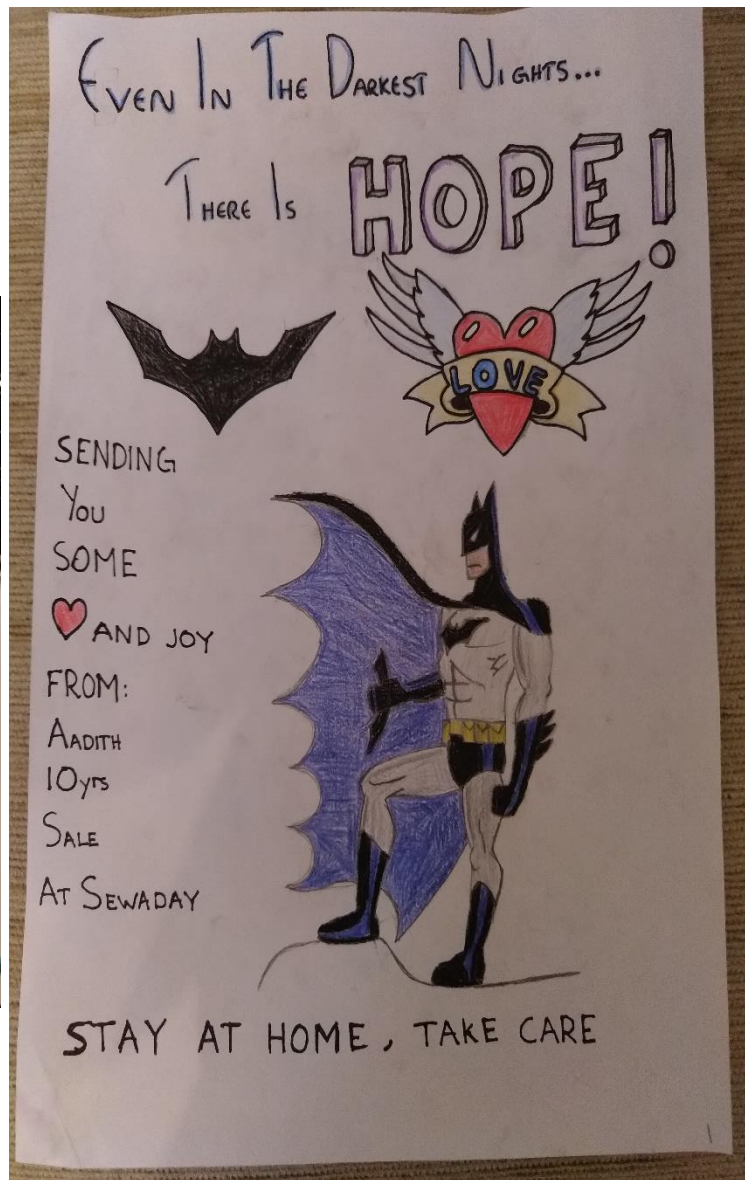 EVEN IN THE DARKEST NIGHTS...
THERE IS HOPE!
LOVE
SENDING
YOU
SOME
AND JOY
FROM:
AADITH
10yrs
SALE
AT SEWADAY
STAY AT HOME, TAKE CARE
1